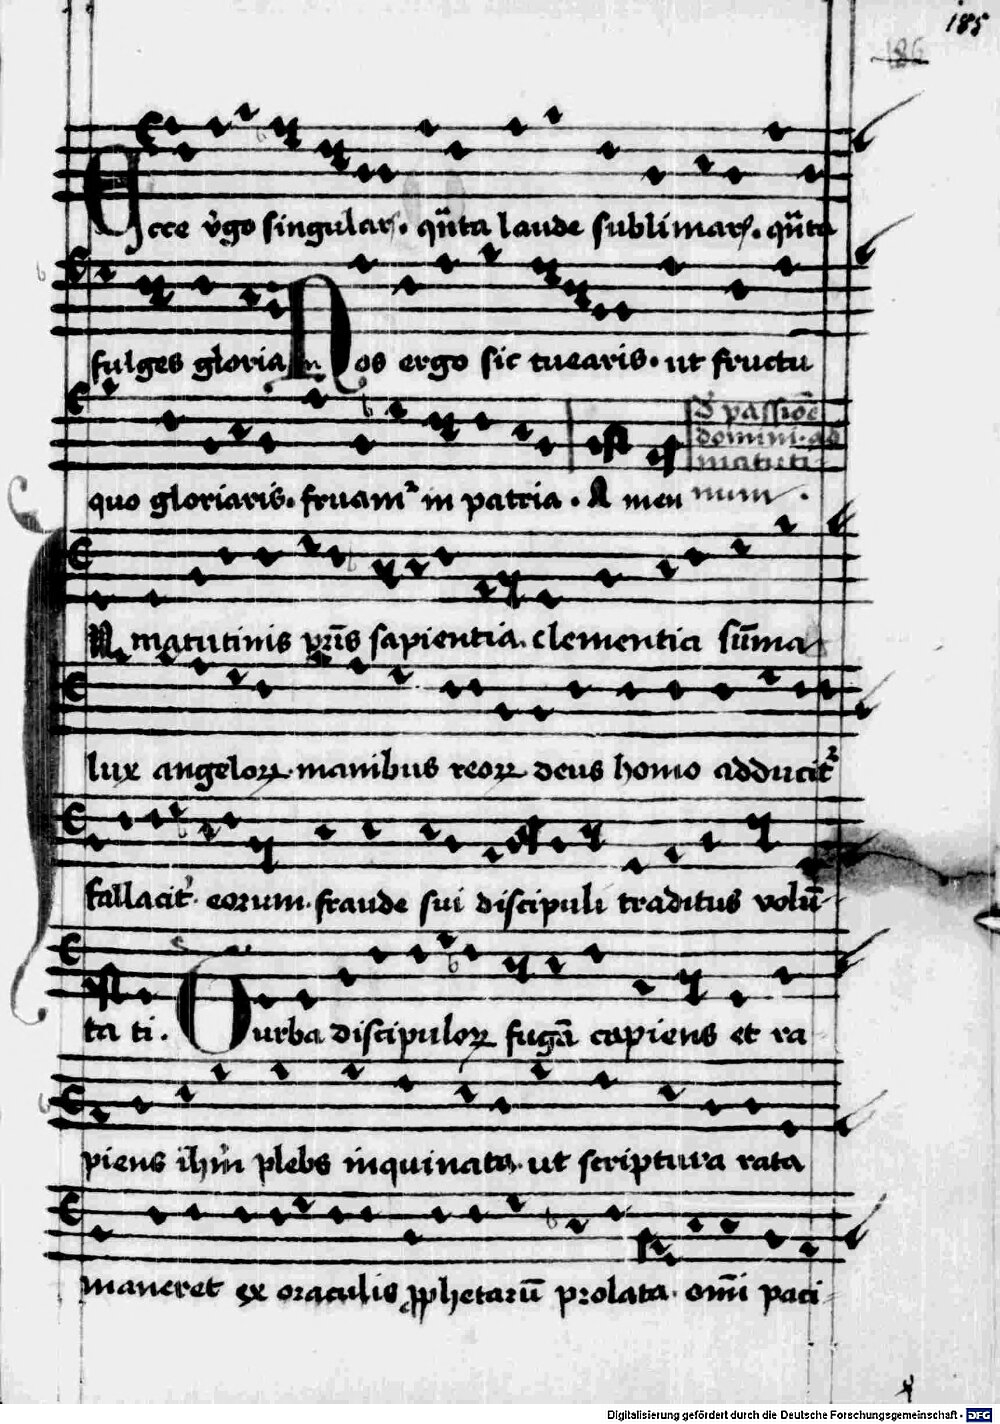 185
186
Ecce v̓go singularꝭ. qͣnta laude sublimarꝭ. qͣnta
fulges gloria Nos ergo sic tuearis. ut fructu
quo gloriaris. fruamͬ in patria. A men
De passiōe
domini. ad
matuti
num.
matutinis pr̄is sapientia. clementia sūma
lux angeloꝝ. manibus reoꝝ deus homo adducitͬ
fallacit̓. eorum. fraude sui discipuli traditus volū
ta ti. Turba discipuloꝝ fugā capiens et ra
piens ih̄m plebs inquinata. ut scriptura rata
maneret ex oraculis ꝓphetarū prolata. om̄i paci
Digitalisierung gefördert durch die Deutsche Forschungsgemeinschaft - DFG